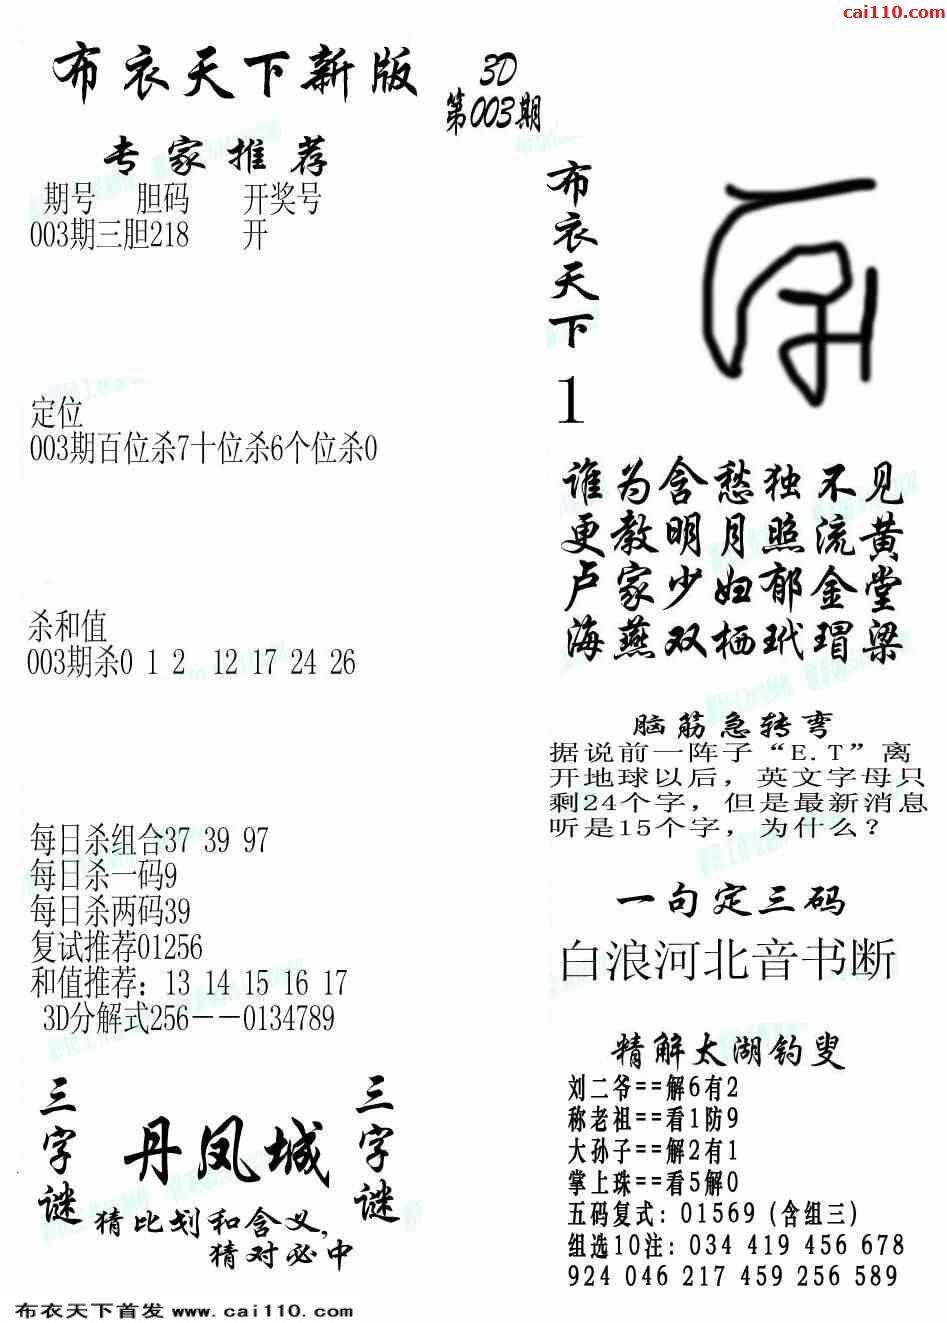 cai110.com
布衣天下新版
3D
第003期
专家推荐
期号 胆码 开奖号
003期三胆218 开
定位
003期百位杀7十位杀6个位杀0
杀和值
003期杀0 1 2 12 17 24 26
每日杀组合37 39 97
每日杀一码9
每日杀两码39
复试推荐01256
和值推荐：13 14 15 16 17
3D分解式256－－0134789
三字谜
丹凤城
三字谜
猜比划和含义，
猜对必中
布衣天下1
谁为含愁独不见
更教明月照流黄
卢家少妇郁金堂
海燕双栖玳瑁梁
脑筋急转弯
据说前一阵子“E.T”离
开地球以后，英文字母只
剩24个字，但是最新消息
听是15个字，为什么？
一句定三码
白浪河北音书断
精解太湖钓叟
刘二爷==解6有2
称老祖==看1防9
大孙子==解2有1
掌上珠==看5解0
五码复式：01569（含组三）
组选10注：034 419 456 678
924 046 217 459 256 589
布衣天下首发 www.cai110.com